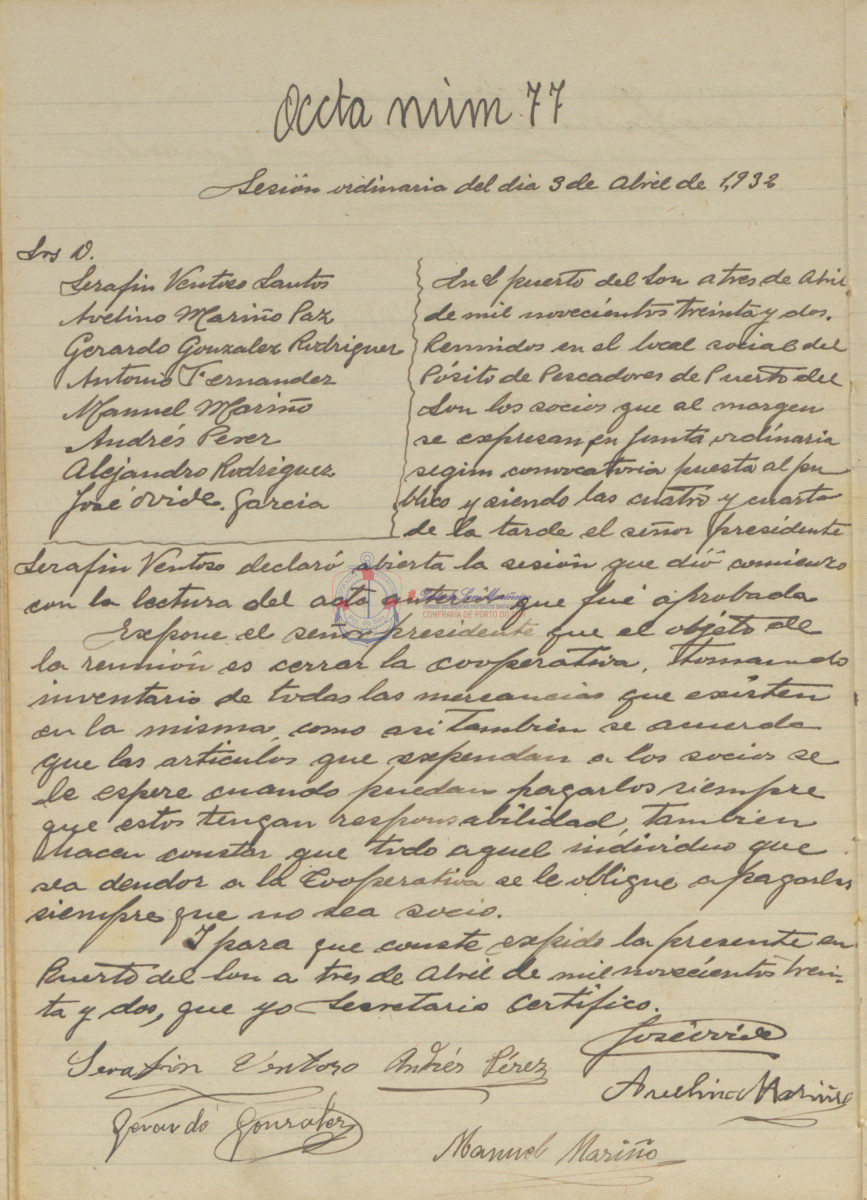 Acta núm 77
Sesión ordinaria del dia 3 de Abril de 1,932
Srs D.
Serafin Ventoso Santos
Avelino Mariño Paz
Gerardo Gonzalez Rodriguez
Antonio Fernandez
Manuel Mariño
Andrés Perez
Alejandro Rodriguez
José Ovide. Garcia
En el puerto del Son a tres de Abril
de mil novecientos treinta y dos.
Reunidos en el local social del
Pósito de Pescadores de Puerto del
Son los socios que al margen
se expresan, en junta ordinaria
segun convocatoria puesta al pu
blico y siendo las cuatro y cuarta
de la tarde el señor presidente
Serafin Ventoso declaró abierta la sesión que dió comienzo
con la lectura del acta anterior que fué aprobada
Expone el señor presidente que el objeto de
la reunión es cerrar la cooperativa, tomando
inventario de todas las mercancias que existen
en la misma, como asi tambien se acuerda
que las articulos que expendan a los socios se
le espere cuando puedan pagarlos siempre
que estos tengan responsabilidad tambien
hacen constar que todo aquel individuo que
sea deudor a la Cooperativa se le obligue a pagarlas
siempre que no sea socio.
I para que conste expido la presente en
Puerto del Son a tres de Abril de mil novecientos trein-
ta y dos, que yo Secretario Certifico.
José Ovide
Serafin Ventoso Andrés Pérez
Avelino Mariño
Gerardo Gonzalez
Manuel Mariño
CONFRARIA DE PORTO DO SON